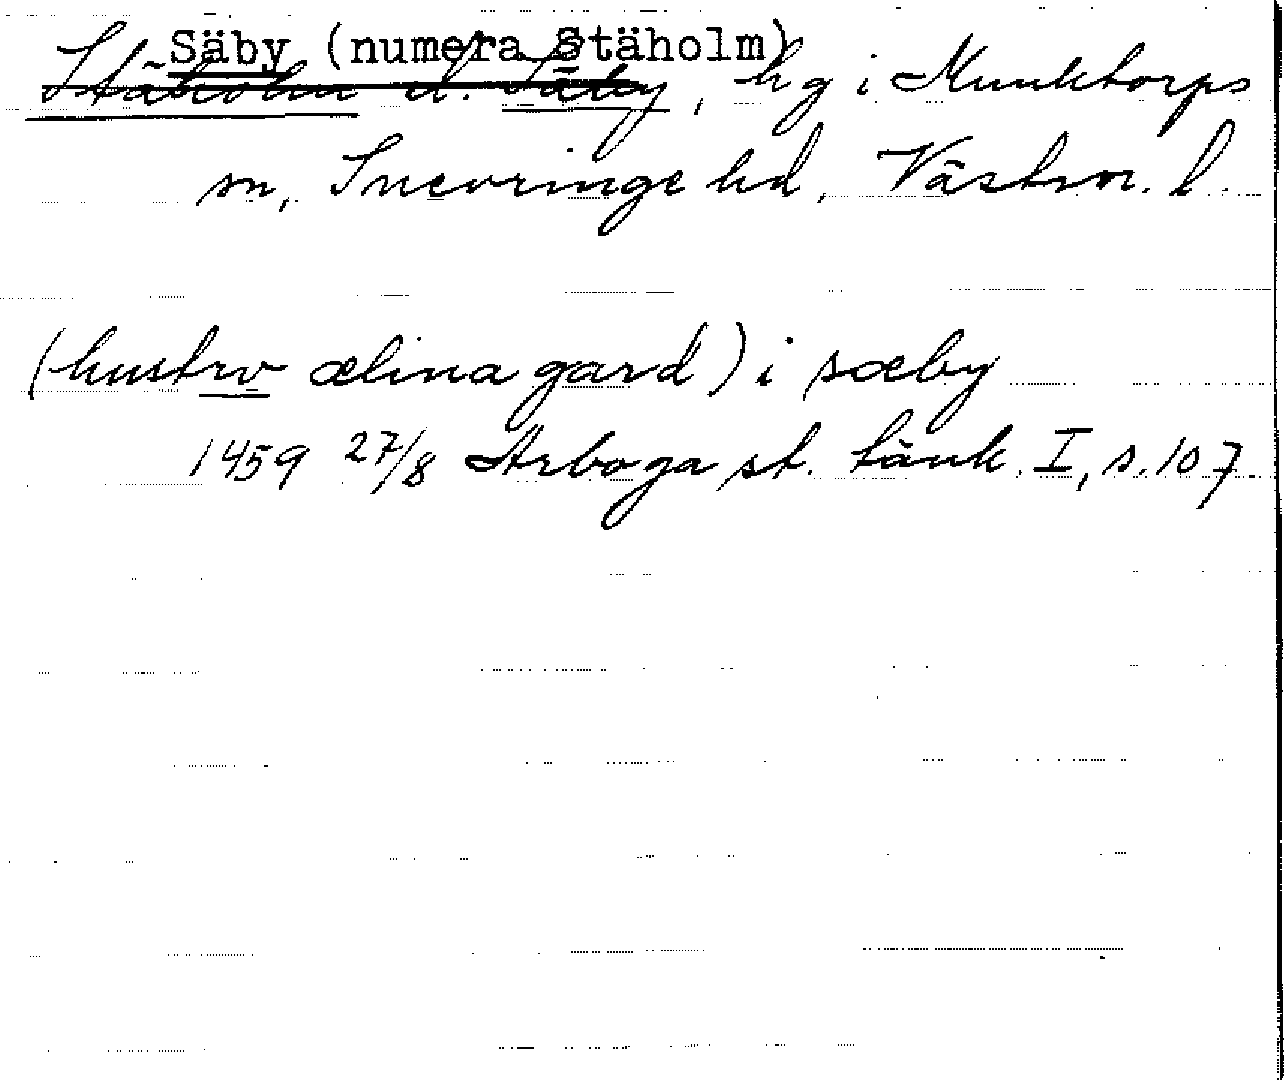 Säby (numera Stäholm)
Stäholm l. Säby, hg i Munktorps
sn, Snevringe hd, Västm. l.
(hustrv ælina gard) i sæby
1459 27/8 Arboga st. tänk. I, s. 107